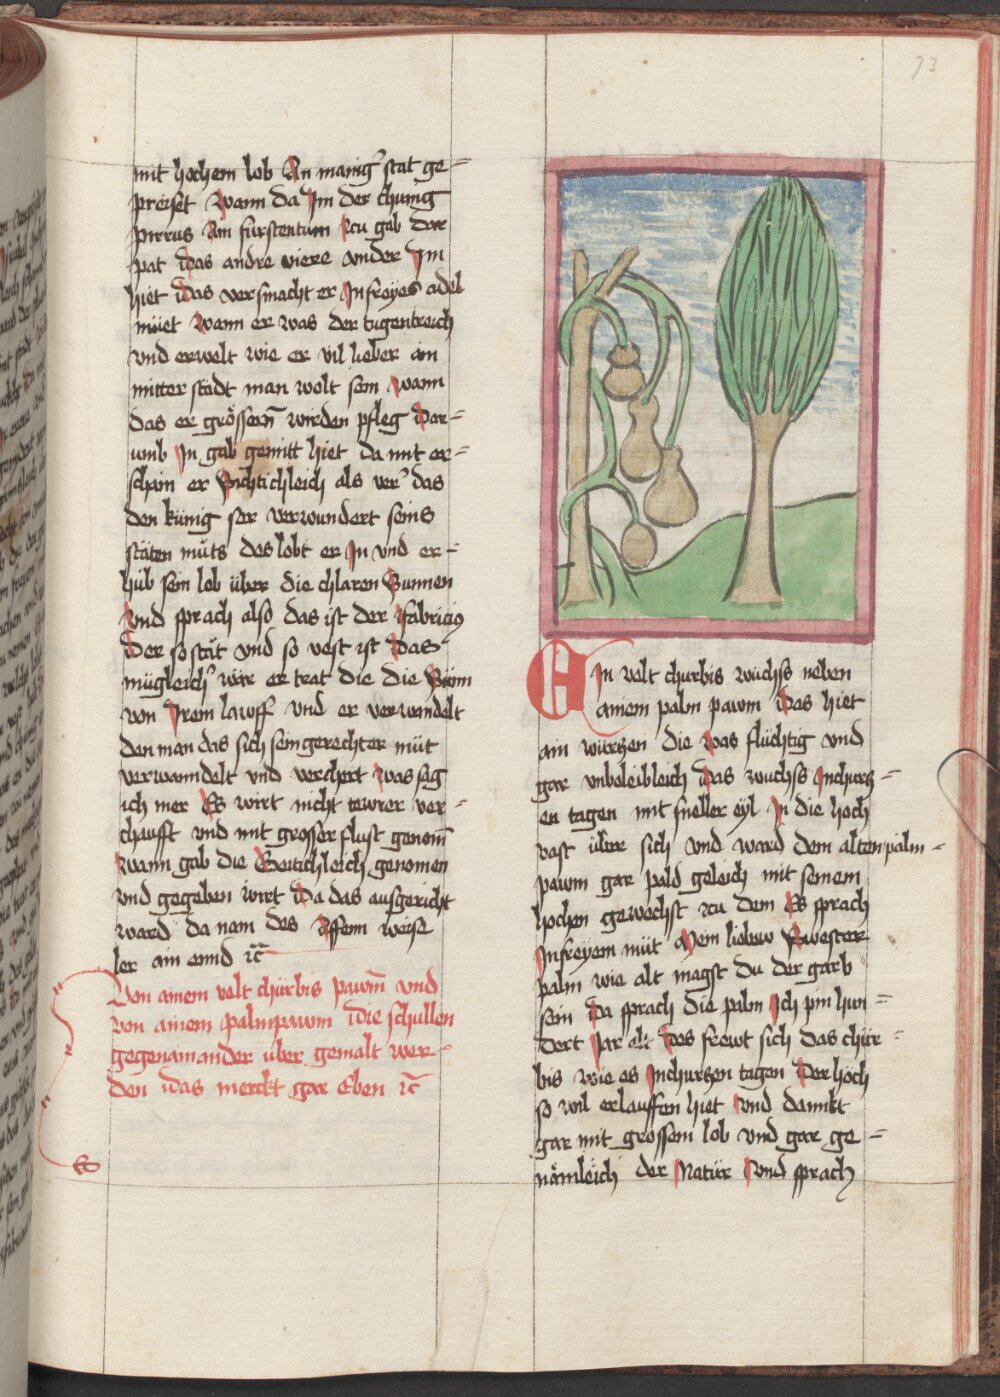 mit hochem lob An manigͬ stat ge=
preiset Wann da Im der chunig
pirrus Ain furstentum zcu gab dar
pat Das andre viere vnder Im
hiet Das versmacht er In freÿes adel
müet Wann er was der tugentreich
vnd erwelt wie er vil lieber ain
mitter stadt man wolt sein wann
das er grössern̄ wirden pfleg Dar=
umb In gab gemitt hiet da mit er=
schain er Sichtichleich als verͬ das
den künig ser verwundert seins
stäten müts des lobt er In vnd er=
hüb sein lob über die chlaren Sunnen
Vnd sprach also das ist der Fabricius
Der so stät vnd so vest ist Das
mügleichͬ wär er trat die die Sünn
von Irem lawff vnd er verwandelt
den man das sich sein gerechter müt
verwanndelt vnd verchert was sag
ich mer Es wirt nicht tewrer ver=
chaufft vnd mit grosser flust genom̄
wann gab die Geitichleich genomen
vnd gegeben wirt Da das ausgericht
ward da nam des Affem weise
ler ain ennd ꝛc̄
Von ainem velt chürbis pawm̄ vnd
von ainem palmpawm die schullen
gegenainander über gemalt wer=
den das merckt gar Eben ꝛc̄
73
EIn velt churbis wüchss neben
ainem palm pawm Das hiet
ain würtzen die was flüchtig vnd
gar vnbeleibleich Das wuchss In churtz=
en tagen mit sneller eyl In die hoch
vast über sich vnd ward dem alten palm=
pawm gar pald geleich mit seinem
hochen gewechst zcu dem Es sprach
In freyem müt Mein liebew Swester
palm wie alt magst du der garb
sein Da sprach die palm Ich pin hun=
dert Iar alt Des frewt sich das chür=
bis wie es In churtzen tagen Der höch
so vil erlauffen hiet vnd dannkt
gar mit grossem lob vnd gar ge=
nämleich der Natur Vnd sprach